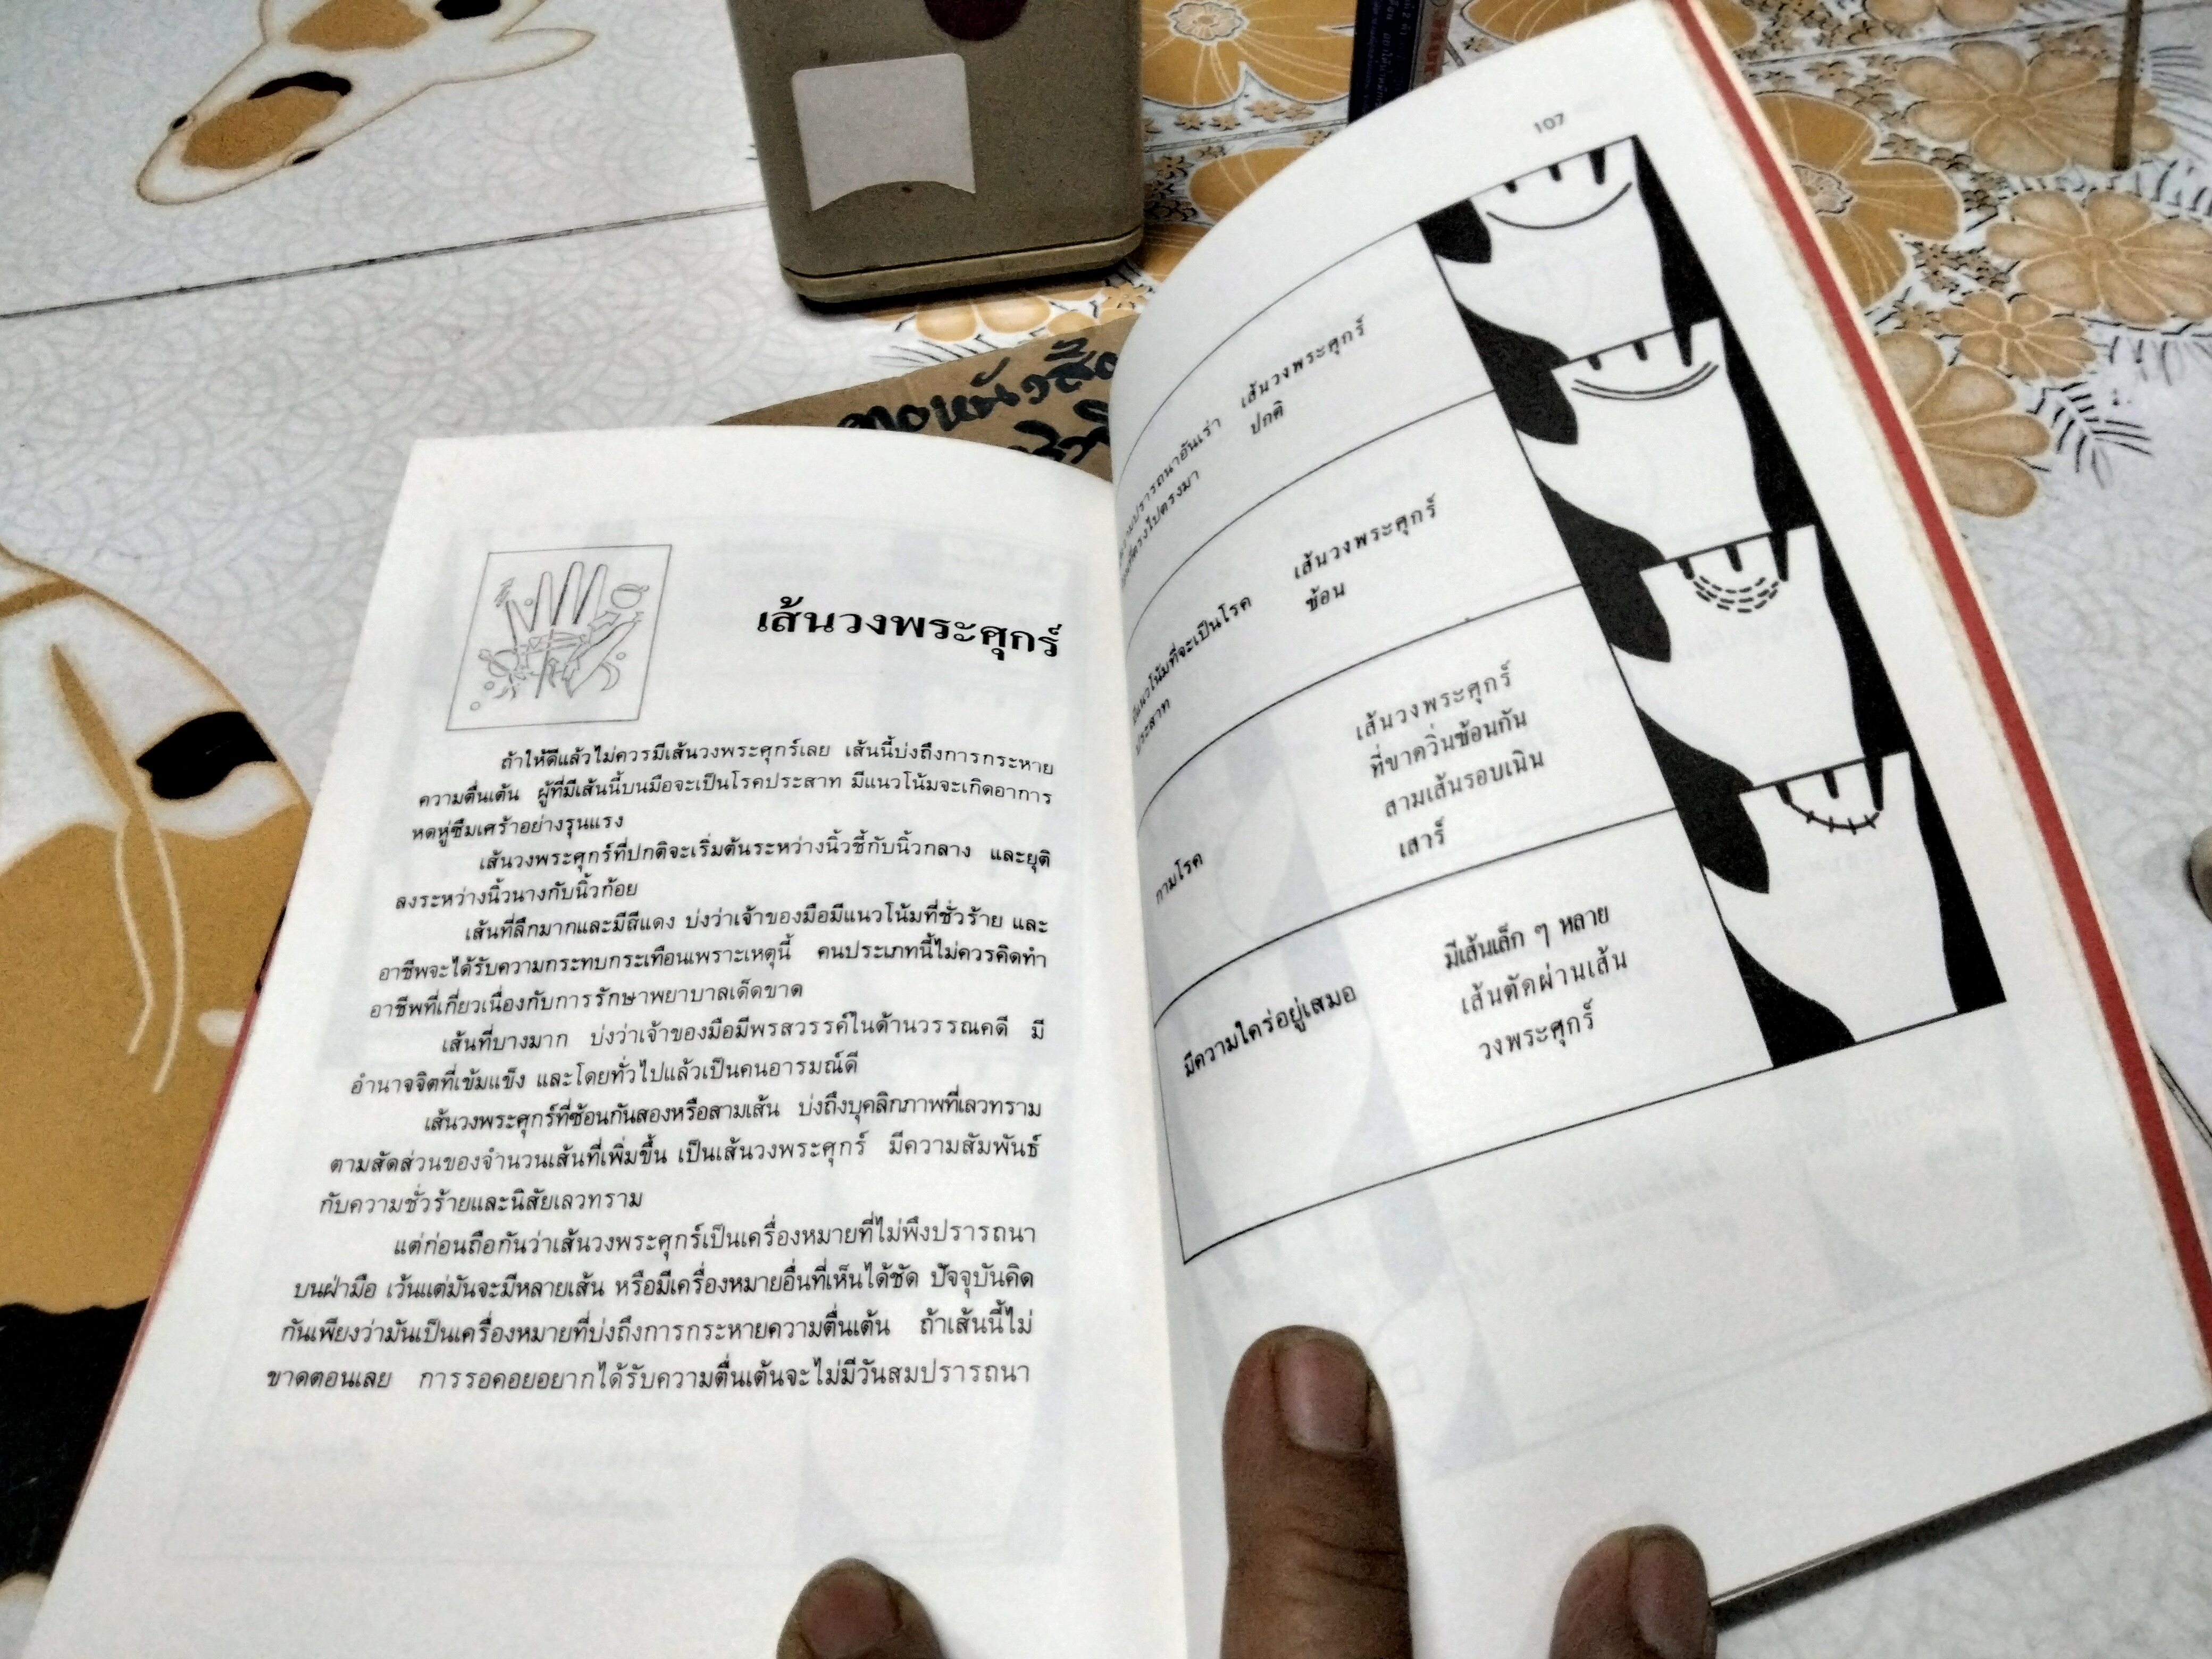 เส้นวงพระศุกร์
ถ้าให้ดีแล้วไม่ควรมีเส้นวงพระศุกร์เลย เส้นนี้บ่งถึงการกระหาย
ความตื่นเต้น ผู้ที่มีเส้นนี้บนมือจะเป็นโรคประสาท มีแนวโน้มจะเกิดอาการ
หดหู่ซึมเศร้าอย่างรุนแรง
เส้นวงพระศุกร์ที่ปกติจะเริ่มต้นระหว่างนิ้วชี้กับนิ้วกลาง และยุติ
ลงระหว่างนิ้วนางกับนิ้วก้อย
เส้นที่ลึกมากและมีสีแดง บ่งว่าเจ้าของมือมีแนวโน้มที่ชั่วร้าย และ
อาชีพจะได้รับความกระทบกระเทือนเพราะเหตุนี้ คนประเภทนี้ไม่ควรคิดทำ
อาชีพที่เกี่ยวเนื่องกับการรักษาพยาบาลเด็ดขาด
เส้นที่บางมาก บ่งว่าเจ้าของมือมีพรสวรรค์ในด้านวรรณคดี มี
อำนาจจิตที่เข้มแข็ง และโดยทั่วไปแล้วเป็นคนอารมณ์ดี
เส้นวงพระศุกร์ที่ซ้อนกันสองหรือสามเส้น บ่งถึงบุคลิกภาพที่เลวทราม
ตามสัดส่วนของจำนวนเส้นที่เพิ่มขึ้น เป็นเส้นวงพระศุกร์ มีความสัมพันธ์
กับความชั่วร้ายและนิสัยเลวทราม
แต่ก่อนถือกันว่าเส้นวงพระศุกร์เป็นเครื่องหมายที่ไม่พึงปรารถนา
บนฝ่ามือ เว้นแต่มันจะมีหลายเส้น หรือมีเครื่องหมายอื่นที่เห็นได้ชัด ปัจจุบันคิด
กันเพียงว่ามันเป็นเครื่องหมายที่บ่งถึงการกระหายความตื่นเต้น ถ้าเส้นนี้ไม่
ขาดตอนเลย การรอคอยอยากได้รับความตื่นเต้นจะไม่มีวันสมปรารถนา
107
ความปรารถนาอันเร่า
ตรงไปตรงมา
เส้นวงพระศุกร์
ปกติ
มีแนวโน้มที่จะเป็นโรค
ประสาท
เส้นวงพระศุกร์
ซ้อน
กามโรค
เส้นวงพระศุกร์
ที่ขาดวิ่นซ้อนกัน
สามเส้นรอบเนิน
เสาร์
มีความใคร่อยู่เสมอ
มีเส้นเล็ก ๆ หลาย
เส้นตัดผ่านเส้น
วงพระศุกร์